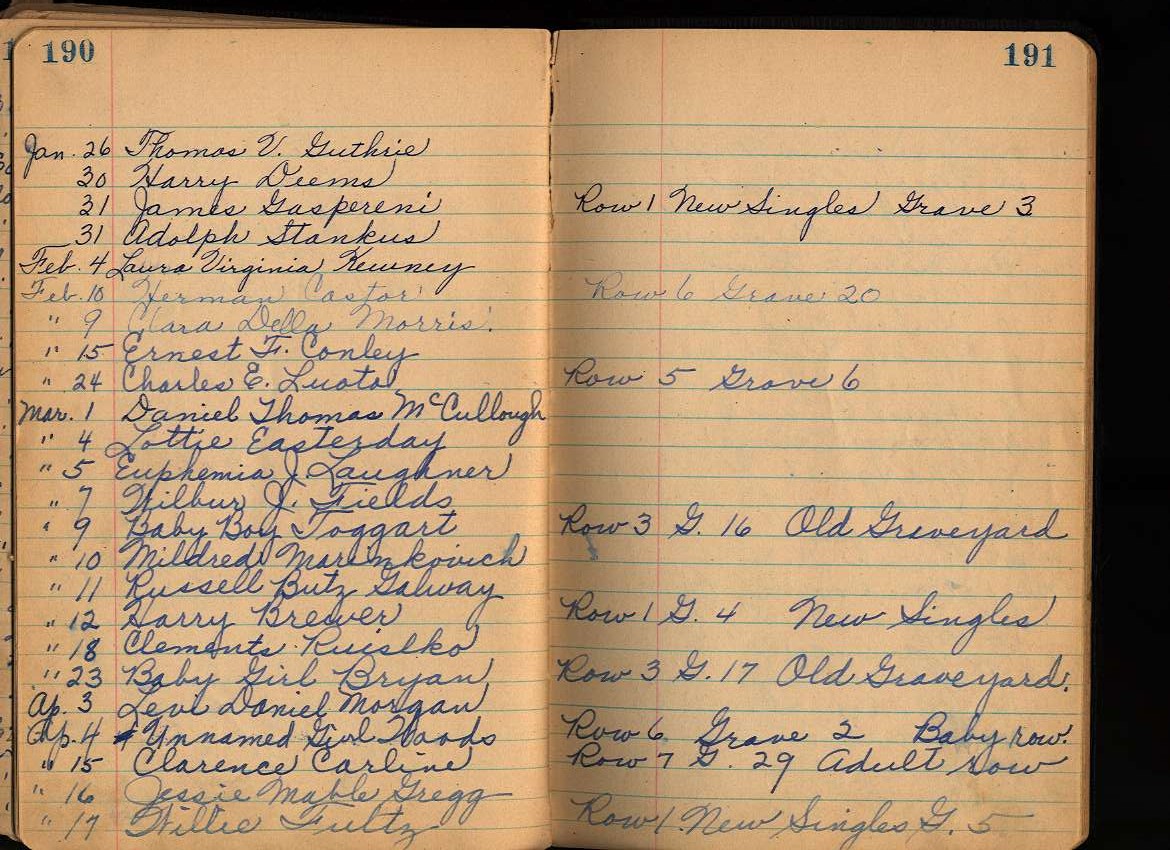 190
Jan. 26 Thomas V. Guthrie
30 Harry Deems
31 James Gaspereni
31 Adolph Stankus
Feb. 4 Laura Virginia Kewney
Feb. 10 Herman Castor
" 9 Clara Della Morris.
" 15 Ernest F. Conley
" 24 Charles E. Luoto
Mar. 1 Daniel Thomas McCullough
" 4 Lottie Easterday
" 5 Euphemia J. Laughner
" 7 Wilbur J. Fields
" 9 Baby Boy Toggart
" 10 Mildred
" 11 Russell Butz Galway
" 12 Harry Brewer
" 18 Clements
" 23 Baby Girl Bryan
Ap. 3 Levi Daniel Morgan
Ap. 4 Unnamed Girl Woods
" 15 Clarence Carline
" 16 Jessie Mable Gregg
" 17 Willie Fultz
191
Row 1 New Singles Grave 3
Row 6 Grave 20
Row 5 Grave 6
Row 3 G. 16 Old Graveyard
Row 1 G. 4 New Singles
Row 3 G. 17 Old Graveyard.
Row 6 Grave 2 Baby row.
Row 7 G. 29 Adult row
Row 1. New Singles G. 5